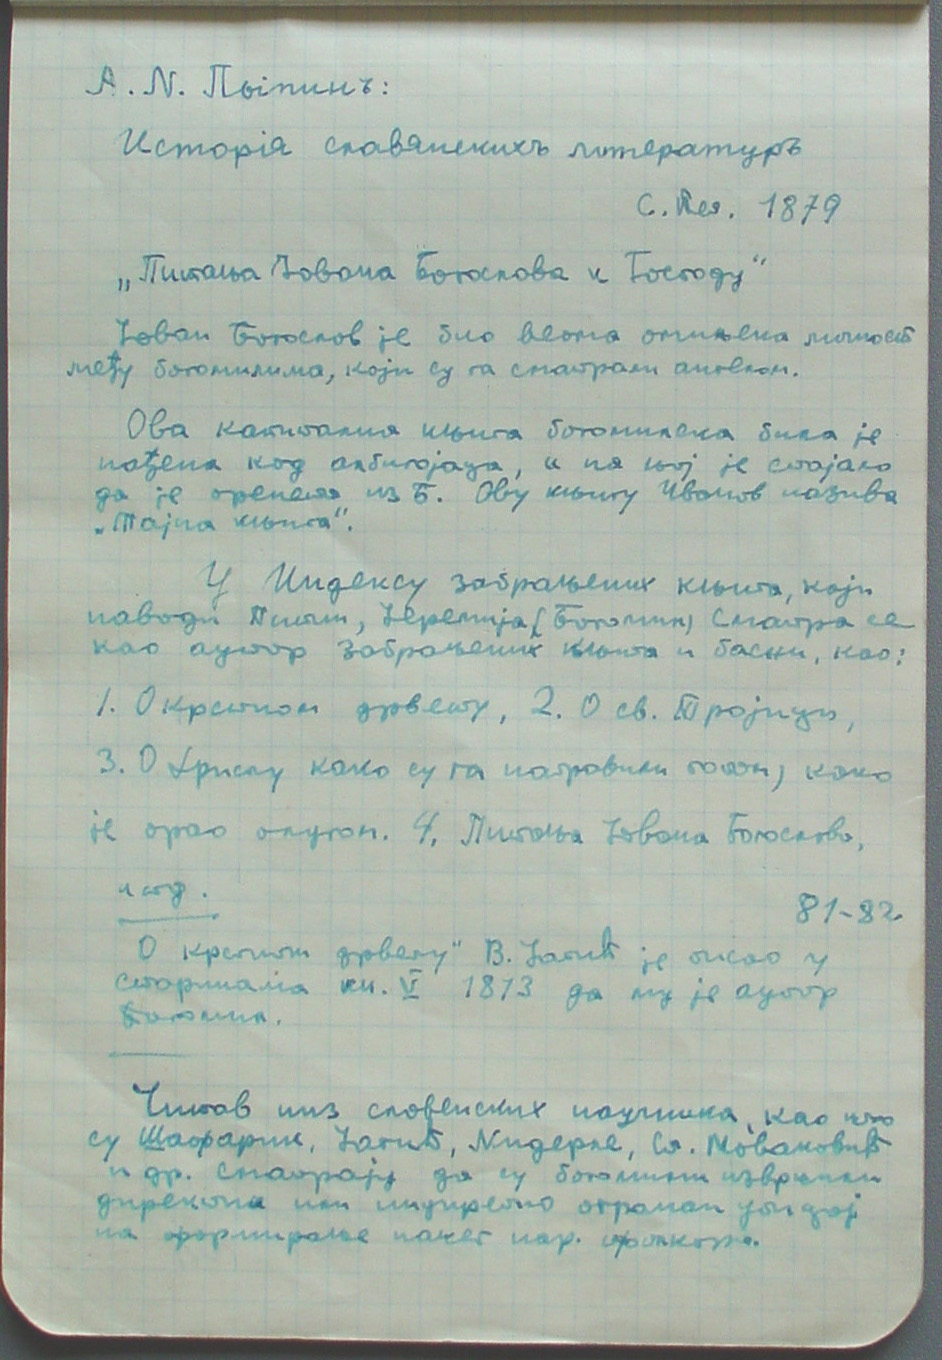 А. N. Пыпинъ:
Исторія славянскихъ литературъ
С. Пет. 1879
„Питања Јована Богослова и Господу“
Јован Богослов је био веома омиљена личност
међу богомилима, који су га сматрали анђелом.
Ова капитална књига богомилска била је
нађена код албигојаца, и на њој је стајало
да је пренета из Б. Ову књигу Иванов назива
„Тајна књига“.
У Индексу забрањених књига, који
наводи Пипин, Јеремија (Богомил) сматра се
као аутор забрањених књига и басни, као:
1. О крсном дрвету, 2. О св. Тројици,
3. О Христу како су га поставили попом, како
је орао плугом. 4. Питања Јована Богослова,
итд.
81-82
О крсном дрвету“ В. Јагић је писао у
Старинама књ. V 1873 да му је аутор
Богомил.
Читав низ словенских научника, као што
су Шафарик, Јагић, Нидерле, Ст. Новаковић
и др. сматрају да су богомили извршили
директно или индиректно огроман утицај
на формирање нашег нар. фолклора.